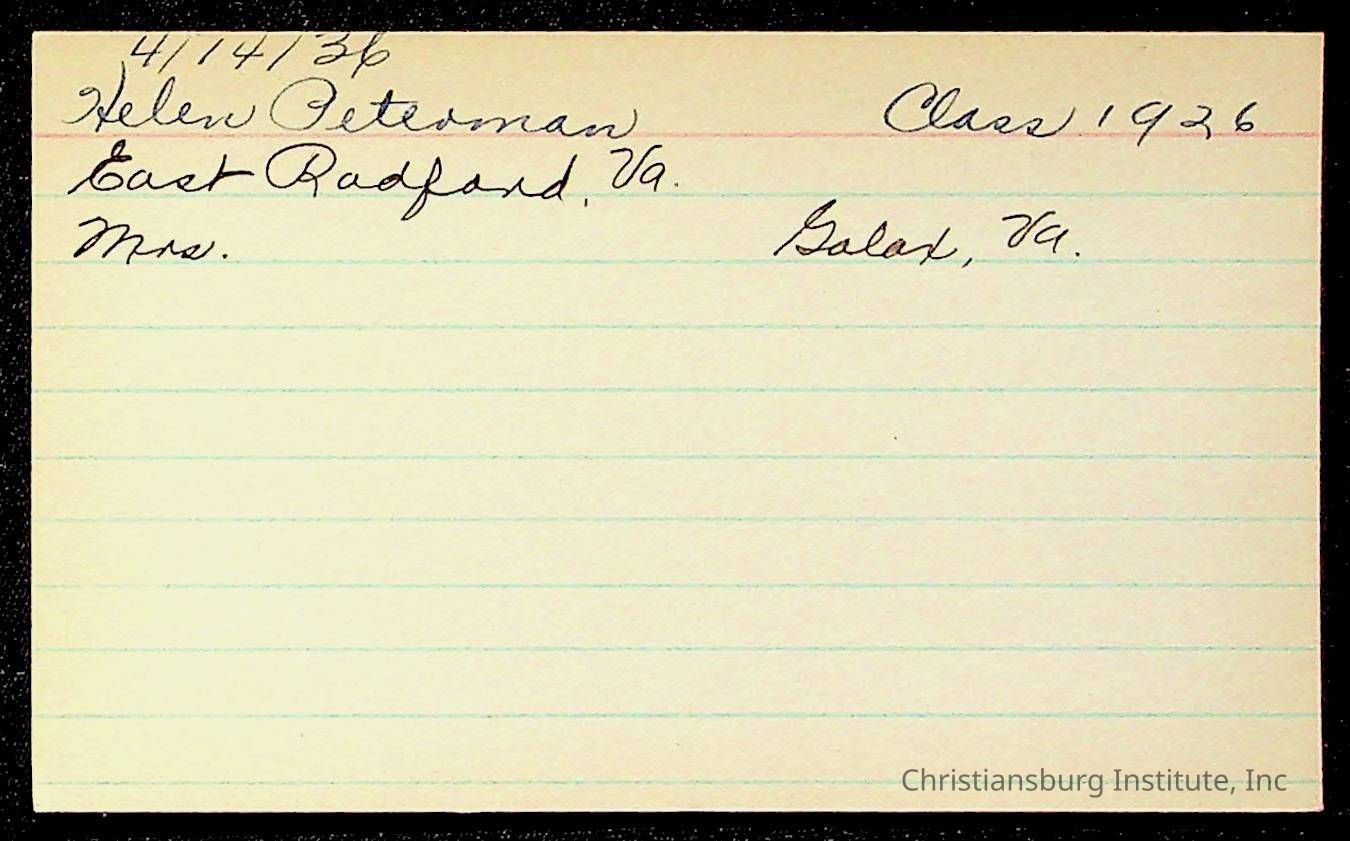 4/14/36
Helen Peterman Class 1926
East Radford, Va.
Mrs. Galax, Va.
Christiansburg Institute, Inc